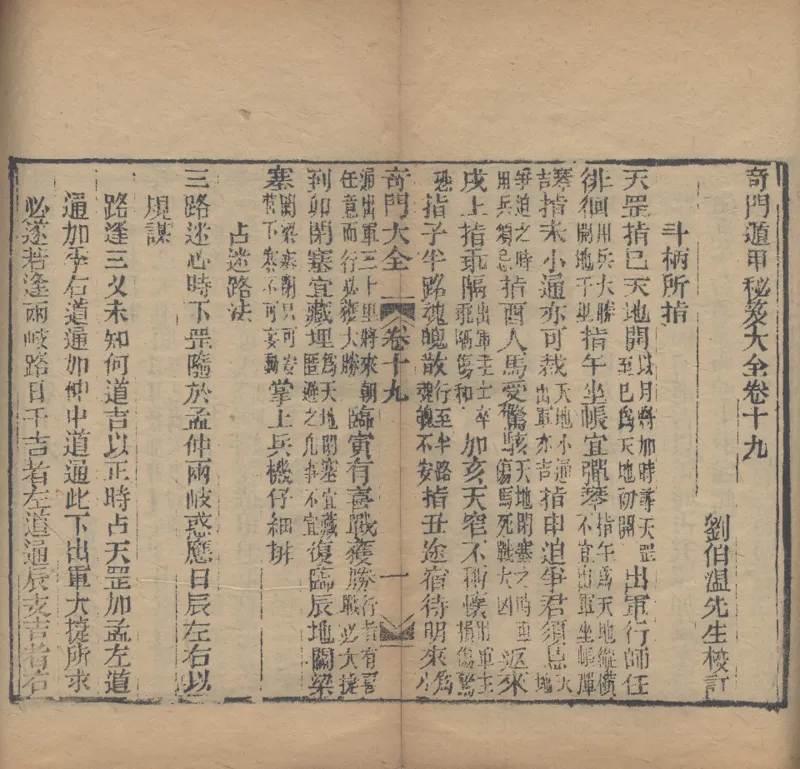 奇門遁甲秘笈大全卷十九
劉伯溫先生校訂
斗柄所指
天罡指巳天地開以月將加時尋天罡至巳為天地初開出軍行師任
徘徊用兵大勝指午坐帳宜彈琴指午為天地縱橫不宜出軍坐帳彈
琴吉指未小通亦可裁天地小通出軍亦吉指申迫爭君須忌天地
爭迫之時用兵須忌指酉人馬受驚駭天地閉塞之時傷馬死戰大凶返來
戌上指乖隔出軍主士卒乖隔傷和加亥天牢不稱懷出軍主損傷驚
恐指子半路魂魄散行至半路魂魄不安指丑途宿待明來為小
奇門大全 卷十九 一
通出軍三十里將來朝任意而行必獲大勝臨寅有喜戰獲勝行者有喜戰必大捷
到卯閉塞宜藏埋為天地閉塞宜藏匿避之凡事不宜復臨辰地關梁
塞關梁塞閉只可安營下寨不可妄動掌上兵機仔細排
占迷路法
三路迷心時下罡隨於孟仲兩岐惑應日辰左右以
規謀
路逢三叉未知何道吉以正時占天罡加孟左道
通加季右道通加仲中道通此下出軍大捷所求
必遂若逢兩岐路日干吉者左道通辰支吉者右